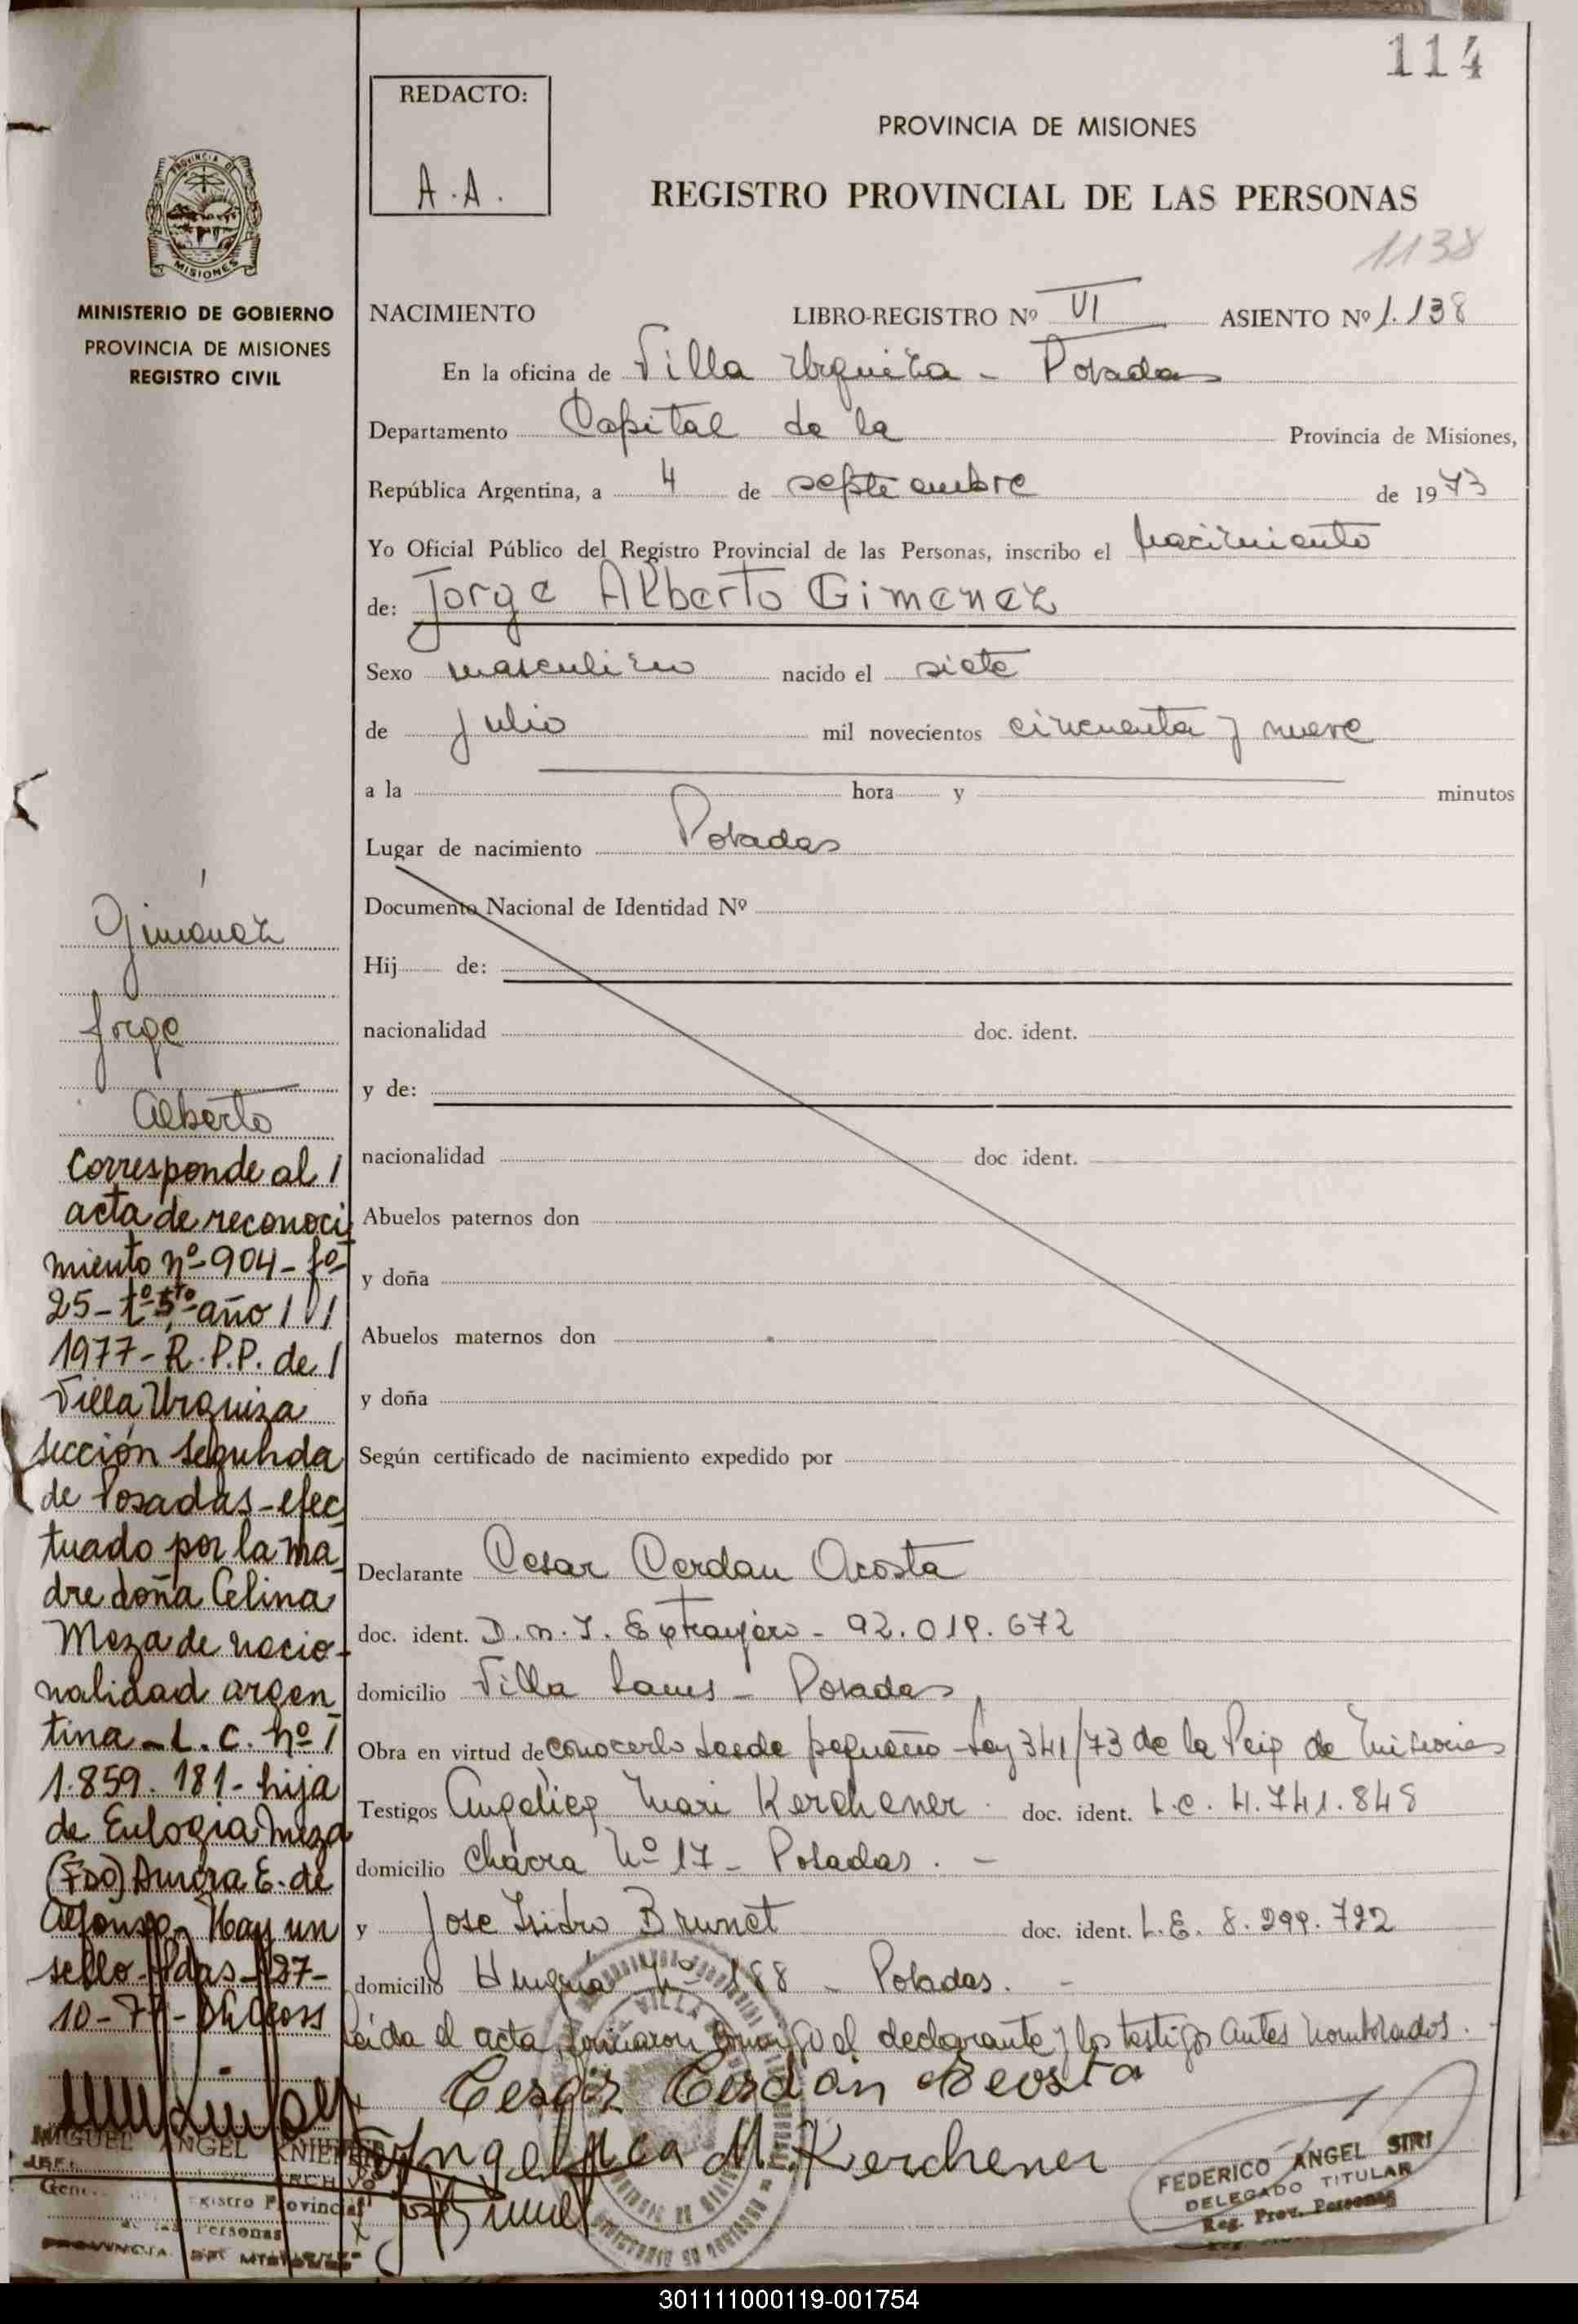 114
REDACTO:
A.A.
PROVINCIA DE MISIONES
REGISTRO PROVINCIAL DE LAS PERSONAS
1138
PROVINCIA DE
MISIONES
MINISTERIO DE GOBIERNO
PROVINCIA DE MISIONES
REGISTRO CIVIL
NACIMIENTO LIBRO-REGISTRO Nº VI ASIENTO Nº 1.138
En la oficina de Villa Urquiza - Posadas
Departamento Capital de la Provincia de Misiones,
República Argentina, a 4 de septiembre de 1973
Yo Oficial Público del Registro Provincial de las Personas, inscribo el nacimiento
de: Jorge Alberto Gimenez
Sexo masculino nacido el siete
de julio mil novecientos cincuenta y nueve
a la hora y minutos
Lugar de nacimiento Posadas
Documento Nacional de Identidad Nº
Hij de:
nacionalidad doc. ident.
y de:
nacionalidad doc. ident.
Abuelos paternos don
y doña
Abuelos maternos don
y doña
Según certificado de nacimiento expedido por
Declarante Cesar Cerdan Acosta
doc. ident. D.N.I. Extranjero - 92.019.672
domicilio Villa Lanus - Posadas
Obra en virtud de conocerlo desde pequeño Ley 341/73 de la Pcia de Misiones
Testigos Angelica Mari Kerchener doc. ident. L.C. 4.741.848
domicilio Chacra Nº 17 - Posadas. -
y Jose Isidro Brunet doc. ident. L.E. 8.299.722
domicilio Hungria Nº 188 - Posadas. -
Leida el acta, firmaron conmigo el declarante y los testigos antes nombrados.
Cesar Cerdan Acosta
Angelica M. Kerchener
FEDERICO ANGEL SIRI
DELEGADO TITULAR
Reg. Prov. Personas
Gimenez
Jorge
Alberto
Corresponde al /
acta de reconoci
miento nº 904 - fº
25 - tº 5to año / / /
1977 - R.P.P. de /
Villa Urquiza
sección segunda
de Posadas - efec
tuado por la ma
dre doña Celina
Meza de nacio-
nalidad argen
tina - L.C. nº /
1.859.181 - hija
de Eulogia Meza
(FDO) Aurora E. de
Alfonso - Hay un
sello - Pdas - 27-
10-77 -
MIGUEL ANGEL
Registro Provincial
de las Personas
PROVINCIA DE MISIONES
301111000119-001754